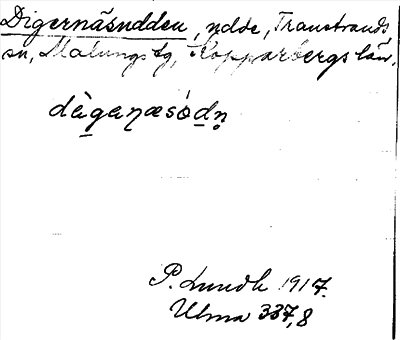 Digernäsudden, udde, Transtrands
sn, Malungs tg, Kopparbergs län.
dàgaņæsódņ
P. Lundh 1917.
Ulma 337,8